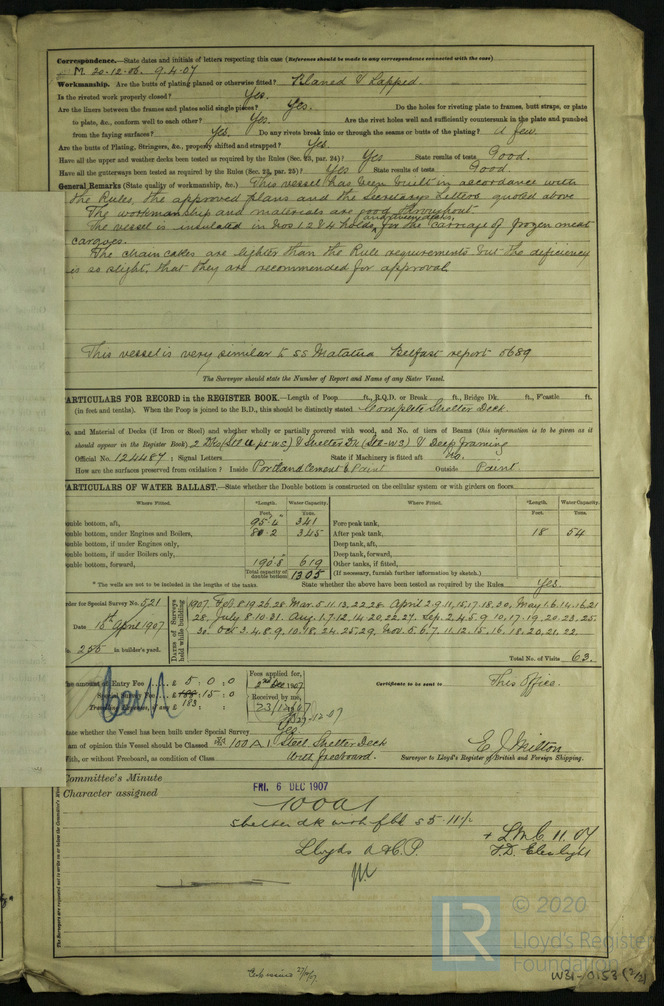 Correspondence.—State dates and initials of letters respecting this case (Reference should be made to any correspondence connected with the case)
M 20-12-06. 9.4.07
Workmanship. Are the butts of plating planed or otherwise fitted? Planed & Lapped.
Is the riveted work properly closed? Yes.
Are the liners between the frames and plates solid single pieces? Yes. Do the holes for riveting plate to frames, butt straps, or plate
to plate, &c., conform well to each other? Yes. Are the rivet holes well and sufficiently countersunk in the plate and punched
from the faying surfaces? Yes. Do any rivets break into or through the seams or butts of the plating? A few.
Are the butts of Plating, Stringers, &c., properly shifted and strapped? Yes.
Have all the upper and weather decks been tested as required by the Rules (Sec. 23, par. 24)? Yes State results of tests Good.
Have all the gutterways been tested as required by the Rules (Sec. 23, par. 25)? Yes State results of tests Good.
General Remarks (State quality of workmanship, &c.) This vessel has been built in accordance with
the Rules, the approved plans and the Secretarys Letters quoted above
The workmanship and materials are good throughout
The vessel is insulated in Nos 1 2 & 4 holds, and tween decks, for the carriage of frozen meat
cargoes.
The chain cables are lighter than the Rule requirements but the deficiency
is so slight, that they are recommended for approval.
This vessel is very similar to SS Matatua Belfast report 5689
The Surveyor should state the Number of Report and Name of any Sister Vessel.
ARTICULARS FOR RECORD in the REGISTER BOOK.—Length of Poop ft., R.Q.D. or Break ft., Bridge Dk. ft., F'castle ft.
(in feet and tenths). When the Poop is joined to the B.D., this should be distinctly stated Complete Shelter Deck.
o. and Material of Decks (if Iron or Steel) and whether wholly or partially covered with wood, and No. of tiers of Beams (this information is to be given as it
should appear in the Register Book) 2 Dks (Steel pt W S) & Shelter Dk (Stl-WS) & Deep framing
Official No. 124487 : Signal Letters State if Machinery is fitted aft No.
How are the surfaces preserved from oxidation? Inside Portland Cement & Paint Outside Paint.
ARTICULARS OF WATER BALLAST.—State whether the Double bottom is constructed on the cellular system or with girders on floors
Where Fitted. *Length. Water Capacity. Where Fitted. *Length. Water Capacity.
Feet. Tons. Feet. Tons.
ouble bottom, aft, 95.4 341 Fore peak tank,
ouble bottom, under Engines and Boilers, 80.2 345 After peak tank, 18 54
ouble bottom, if under Engines only, Deep tank, aft,
ouble bottom, if under Boilers only, Deep tank, forward,
ouble bottom, forward, 190.8 619 Other tanks, if fitted,
Total capacity of double bottom 1305 (If necessary, furnish further information by sketch.)
* The wells are not to be included in the lengths of the tanks. State whether the above have been tested as required by the Rules Yes.
rder for Special Survey No. 521
Date 15th April 1907
o. 255 in builder's yard.
Dates of Surveys held while building
1907. Feb. 8.19.26.28. Mar. 5.11.13.22.28. April 2.9.11.15.17.18.30. May 1.6.14.16.21
28. July 8.10.31. Aug. 1.7.12.14.20.22.27. Sep. 2.4.5.9.10.17.19.20.23.25.
30. Oct 3.4.8.9.10.18.24.25.29. Nov. 5.6.7.11.12.15.16.18.20.21.22.
Total No. of Visits 63.
he amount of Entry Fee £ 5 : 0 : 0
Special Survey Fee £ : 15 : 0
183
Fees applied for,
2nd Dec 1907
Received by me,
23/12/07
27-12-07
Certificate to be sent to This Office.
tate whether the Vessel has been built under Special Survey Yes
am of opinion this Vessel should be Classed 100 A 1 Steel Shelter Deck
With, or without Freeboard, as condition of Class With freeboard.
E. J. Milton
Surveyor to Lloyd's Register of British and Foreign Shipping.
Committee's Minute
FRI. 6 DEC 1907
Character assigned
100A1
Shelter dk with fbd
Lloyds A & C. P.
+ LMC 11.07
The Surveyors are requested not to write on or below the Committee's Minute
© 2020
LR
Lloyd's Register
Foundation
W31-0153 (2/2)